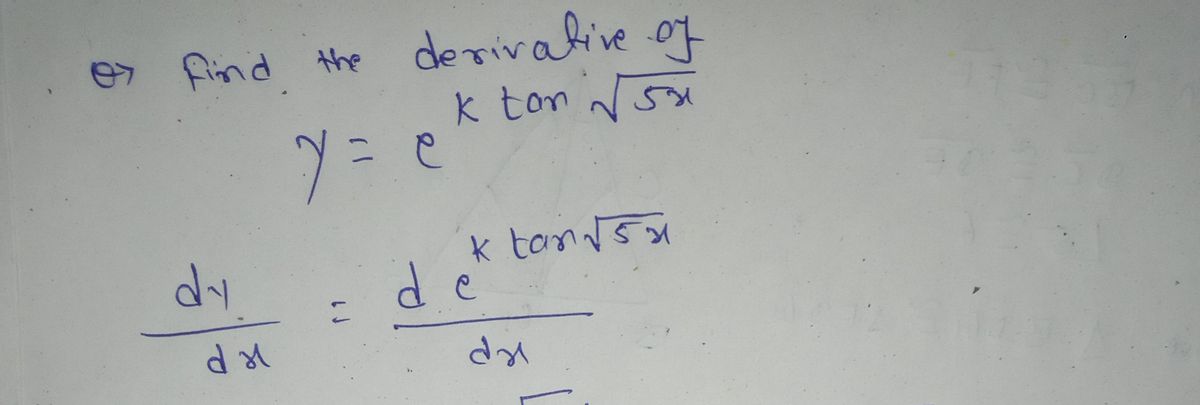 Q> Find the derivative of
y = e^{k tan √5x}
dy/dx = d e^{k tan √5x}/dx